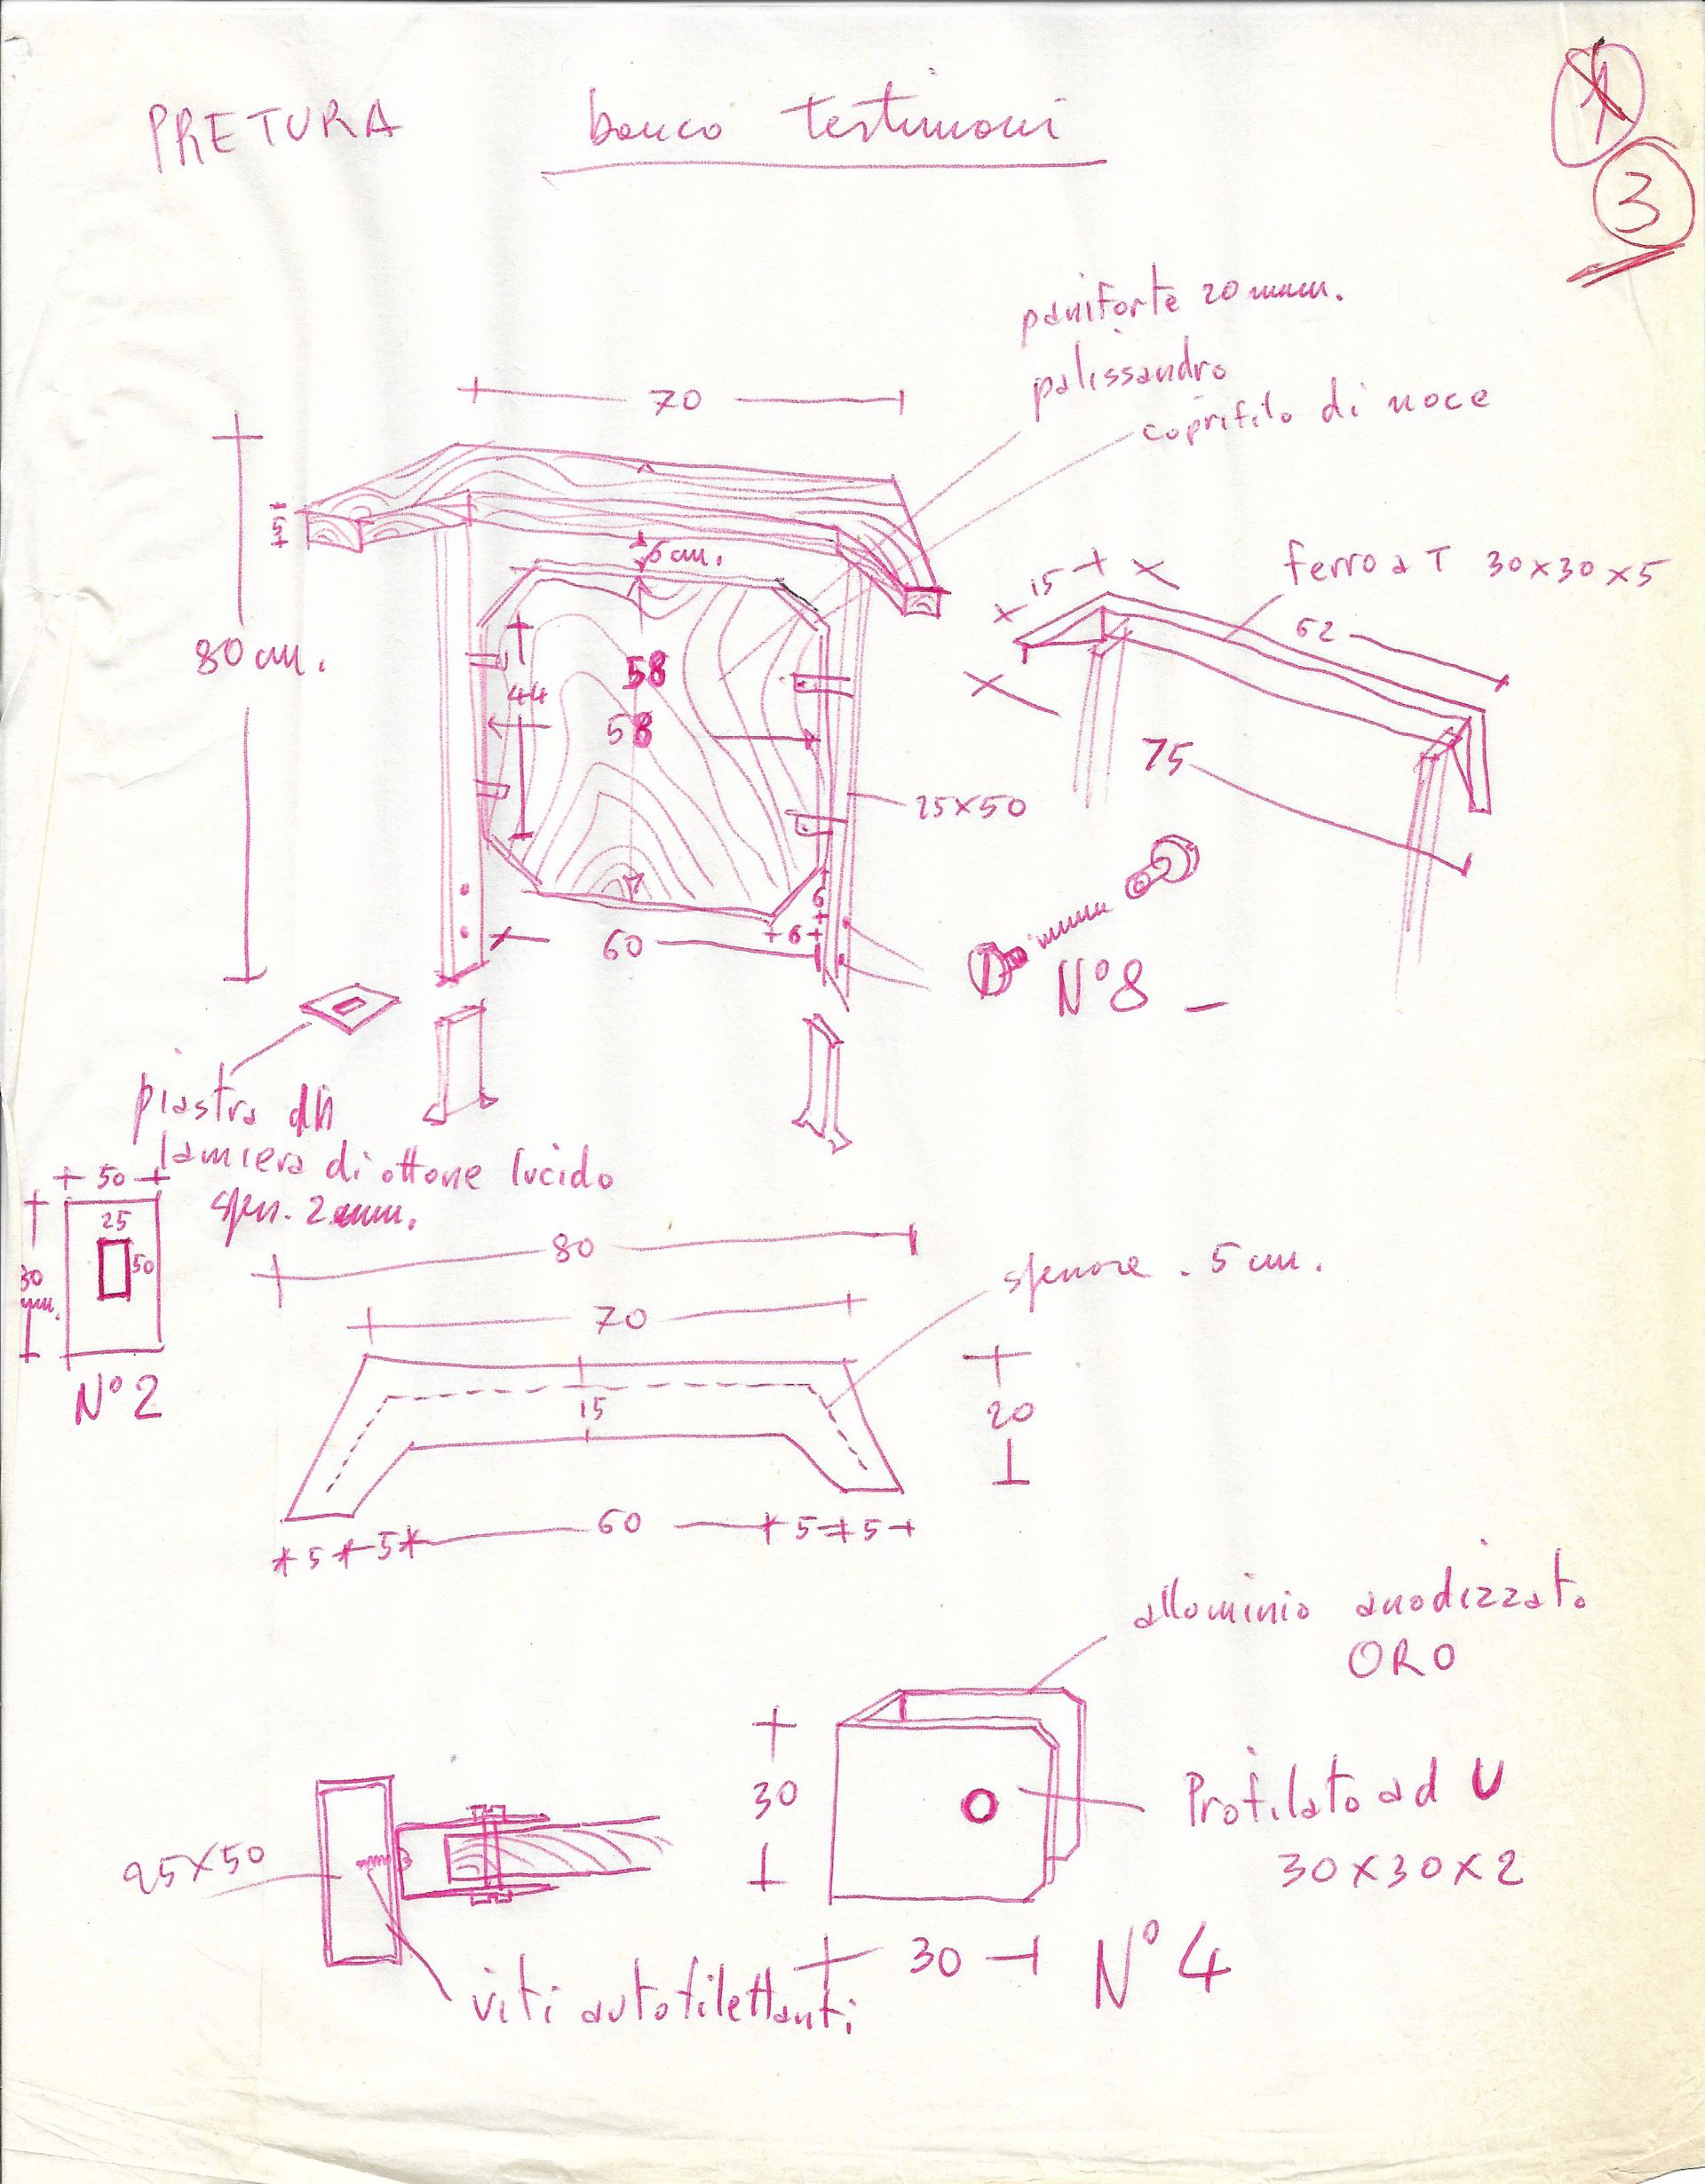 PRETURA banco testimoni
1
3
paniforte 20 mm.
palissandro
coprifilo di noce
70
5
80 cm.
6 cm.
44
58
58
25x50
60
6
6
15
ferro a T 30x30x5
62
75
N° 8
piastra di
lamiera di ottone lucido
spes. 2 mm.
50
25
50
80
mm.
N° 2
80
70
spessore . 5 cm.
15
20
5 5 60 5 5
alluminio anodizzato
ORO
30
Profilato ad U
30x30x2
25x50
30
N° 4
viti autofilettanti